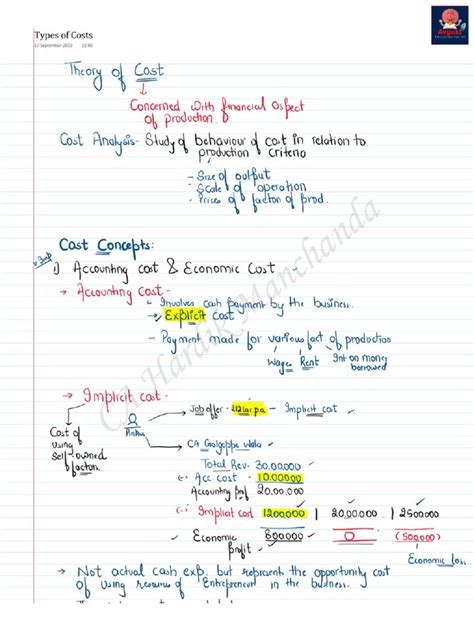 Types of Costs
Theory of Cost
Concerned with financial aspect
of production.
Cost Analysis- Study of behaviour of cost in relation to
production criteria
- Size of output
- Scale of operation
- Prices of factor of prod.
Cost Concepts:
1) Accounting cost & Economic Cost -
→ Accounting Cost -
• Involves cash payment by the business.
→ Explicit cost
- Payment made for various fact. of production
Wages Rent Int on money
borrowed
→ Implicit cost -
Job offer - 12 lac p.a. - Implicit cost
Cost of
using
Self owned
factors.
→ CA Golgappe Wala
Total Rev. 30,00,000
(-) Acc. cost - 10,00,000
Accounting prof 20,00,000
(-) Implicit cost 1200000 | 2000000 | 2500000
Economic profit 800000 0 (500000)
Economic loss
→ Not actual cash exp. but represent the opportunity cost
of using resources of Entrepreneur in the business.
CA Hardik Manchanda